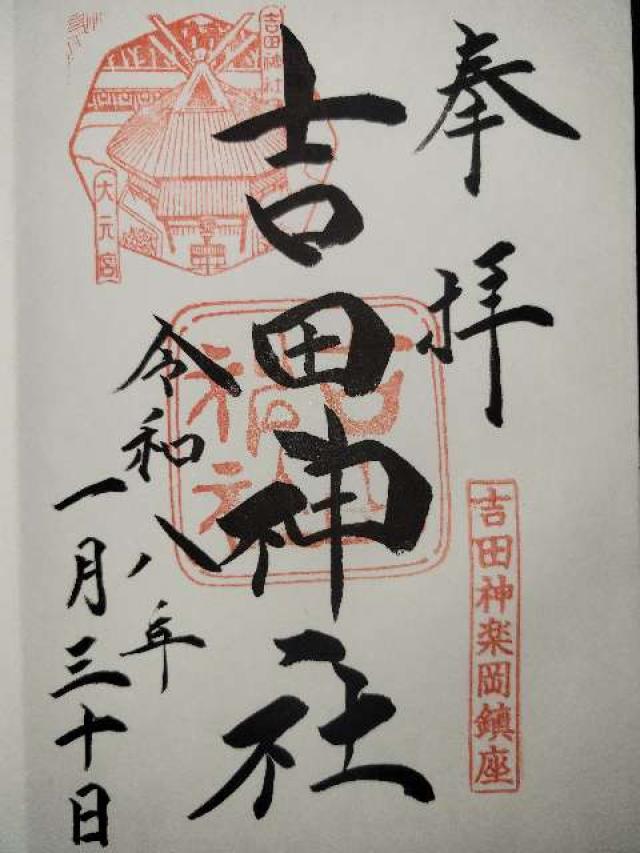 奉拝
吉田神楽岡鎮座
吉田神社
吉田神社
大元宮
令和八年
一月三十日